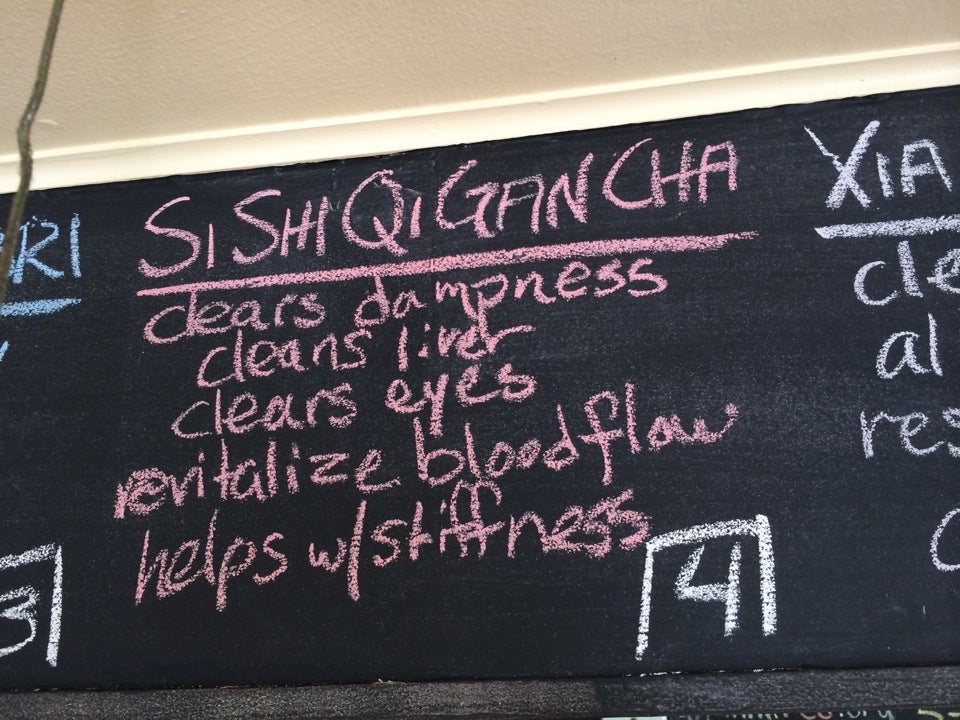 SI SHI QI GAN CHA
clears dampness
cleans liver
clears eyes
revitalize bloodflow
helps w/stiffness
4
RI
3
XIA
cle
al
res